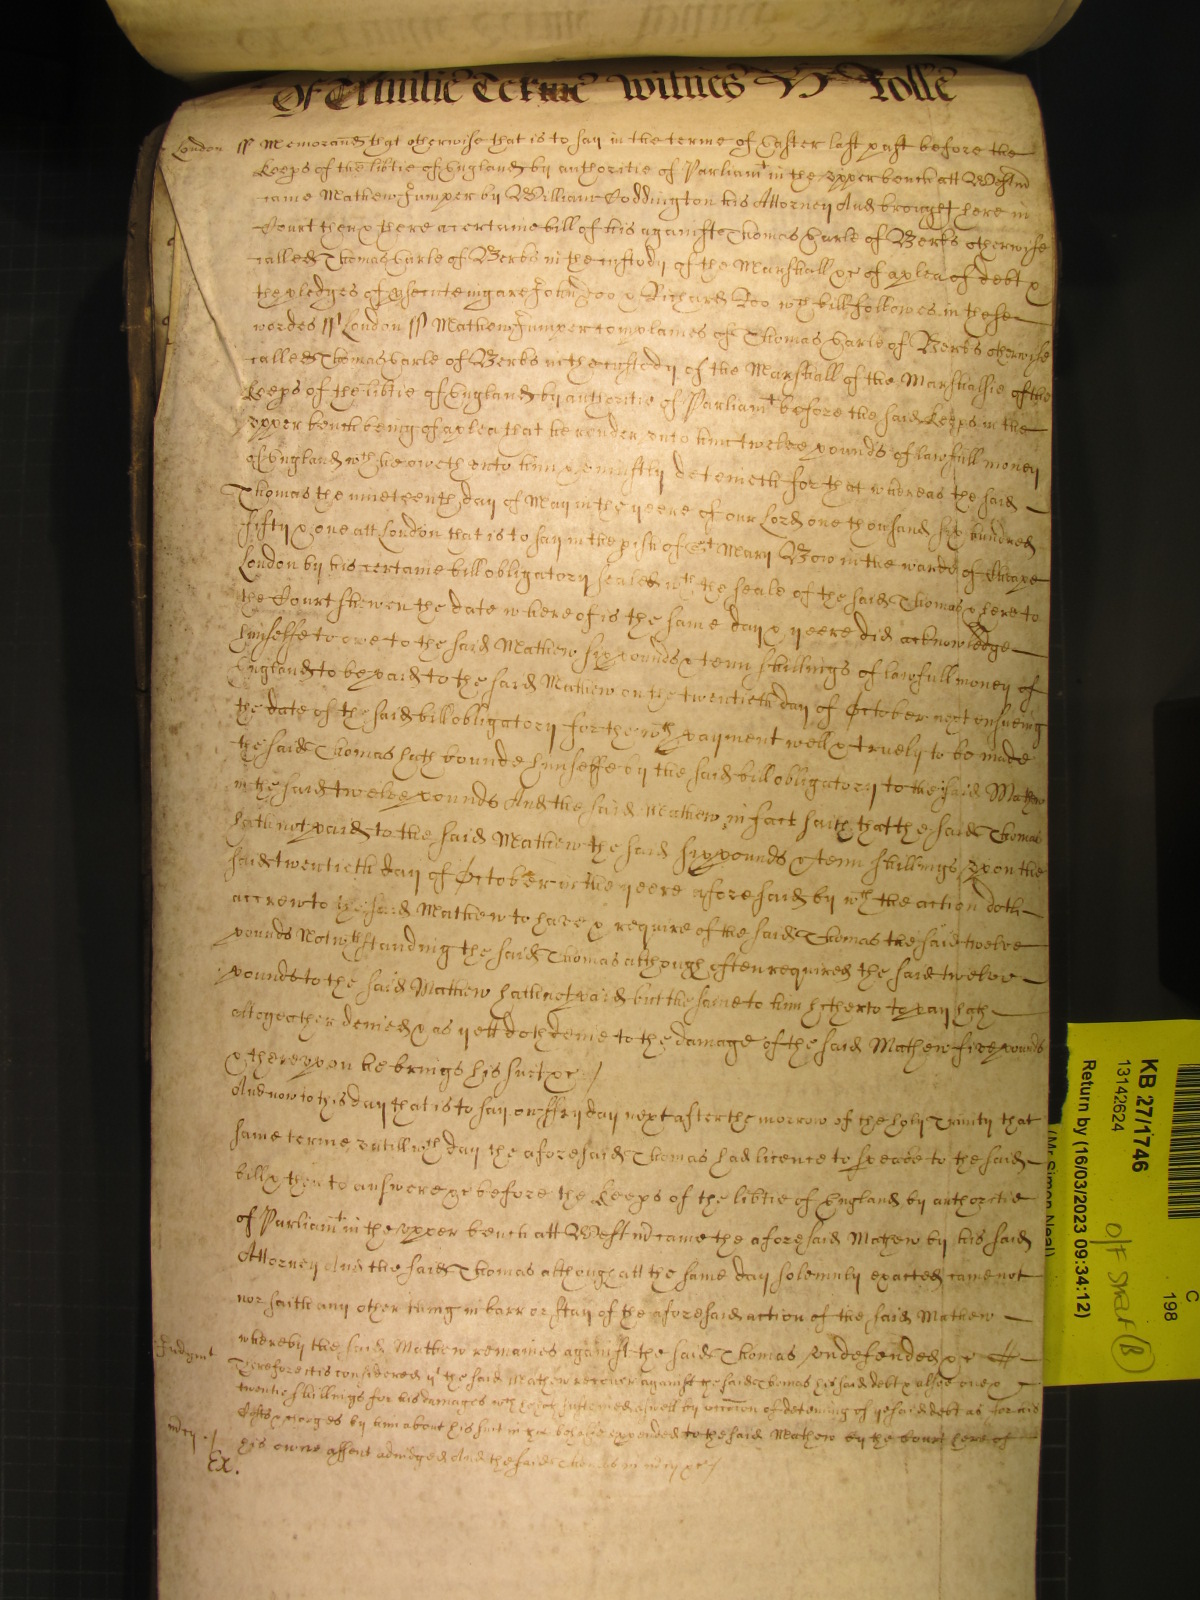 Of Trinitie Terme Witnes H Rolle
London ss Memorand that otherwise that is to say in the terme of Easter last past before the
Keeps of the libtie of England by authoritie of Parliamt in the upper bench att Westm
came Mathew Jumper by William Coddington his Attorney And brought here in
Court then & there a certaine bill of his against Thomas Earle of Berks otherwise
called Thomas Earle of Berks in the custody of the Marshall &c of a plea of debt &
the pledges of psecuteing are John Doo & Richard Roo wch bill followes in these
wordes ss London ss Mathew Jumper complaines of Thomas Earle of Berks otherwise
called Thomas Earle of Berks in the custody of the Marshall of the Marshalsie of the
Keeps of the libtie of England by authoritie of Parliamt before the said Keeps in the
upper bench being of a plea that he render unto him twelve pounds of lawfull money
of England wch he oweth unto him & uniustly deteineth for that whereas the said
Thomas the nineteenth day of May in the yeere of our Lord one thousand six hundred
fifty & one att London that is to say in the pish of St Mary Bow in the warde of Cheape
London by his certaine bill obligatory sealed wth the seale of the said Thomas & here to
the Court shewen the date whereof is the same day & yeere did acknowledge
himselfe to owe to the said Mathew six pounds & tenn shillings of lawfull money of
England to be paid to the said Mathew on the twentieth day of October next ensueing
the date of the said bill obligatory for the wch payment well & truely to be made
the said Thomas hath bounde himselfe by the said bill obligatory to the said Mathew
in the said twelve pounds And the said Mathew in fact saith that the said Thomas
hath not paid to the said Mathew the said six pounds & tenn shillings upon the
said twentieth day of October in the yeere aforesaid by wch the action doth
accrew to the said Mathew to have & require of the said Thomas the said twelve
pounds Notwthstanding the said Thomas although often required the said twelve
pounds to the said Mathew hath not paid but the same to him hitherto to pay hath
altogeather denied & as yett doth denie to the damage of the said Mathew five pounds
& thereupon he brings his suit &c /
And now to this day that is to say on ffryday next after the morrow of the holy Trinity that
same terme untill wch day the aforesaid Thomas had licence to speake to the said
bill & then to answere &c before the Keeps of the libtie of England by authoritie
of Parliamt in the upper bench att Westm came the aforesaid Mathew by his said
Attorney And the said Thomas although att the same day solemnly exacted came not
nor saith any other thing in barr or stay of the aforesaid action of the said Mathew
whereby the said Mathew remaines against the said Thomas undefended &c
Judgmt Therefore itis considered yt the said Mathew recover against the said Thomas his said debt & alsoe
twentie shillings for his damages wch he hath susteined aswell by occasion of deteining of ye said debt as for his
Costs & charges by him about his suit in that behalfe expended to the said Mathew by the Court here of
mcy / his owne assent adiudged And the said Thomas in mcy &c /
Ex.
KB 27/1746
13142624
Return by (16/03/2023 09:34:12)
(Mr Simon Neal)
C
198